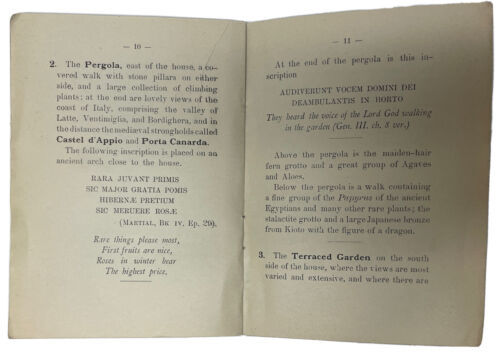 — 10 —
2. The Pergola, east of the house, a co-
vered walk with stone pillars on either
side, and a large collection of climbing
plants: at the end are lovely views of the
coast of Italy, comprising the valley of
Latte, Ventimiglia, and Bordighera, and in
the distance the mediæval strongholds called
Castel d'Appio and Porta Canarda.
The following inscription is placed on an
ancient arch close to the house.
RARA JUVANT PRIMIS
SIC MAJOR GRATIA POMIS
HIBERNÆ PRETIUM
SIC MERUERE ROSÆ
(MARTIAL, BK IV, EP. 29).
Rare things please most,
First fruits are nice,
Roses in winter bear
The highest price.
— 11 —
At the end of the pergola is this in-
scription
AUDIVERUNT VOCEM DOMINI DEI
DEAMBULANTIS IN HORTO
They heard the voice of the Lord God walking
in the garden (Gen. III. ch. 8 ver.)
Above the pergola is the maiden-hair
fern grotto and a great group of Agaves
and Aloes.
Below the pergola is a walk containing
a fine group of the Papyrus of the ancient
Egyptians and many other rare plants; the
stalactite grotto and a large Japanese bronze
from Kioto with the figure of a dragon.
3. The Terraced Garden on the south
side of the house, where the views are most
varied and extensive, and where there are